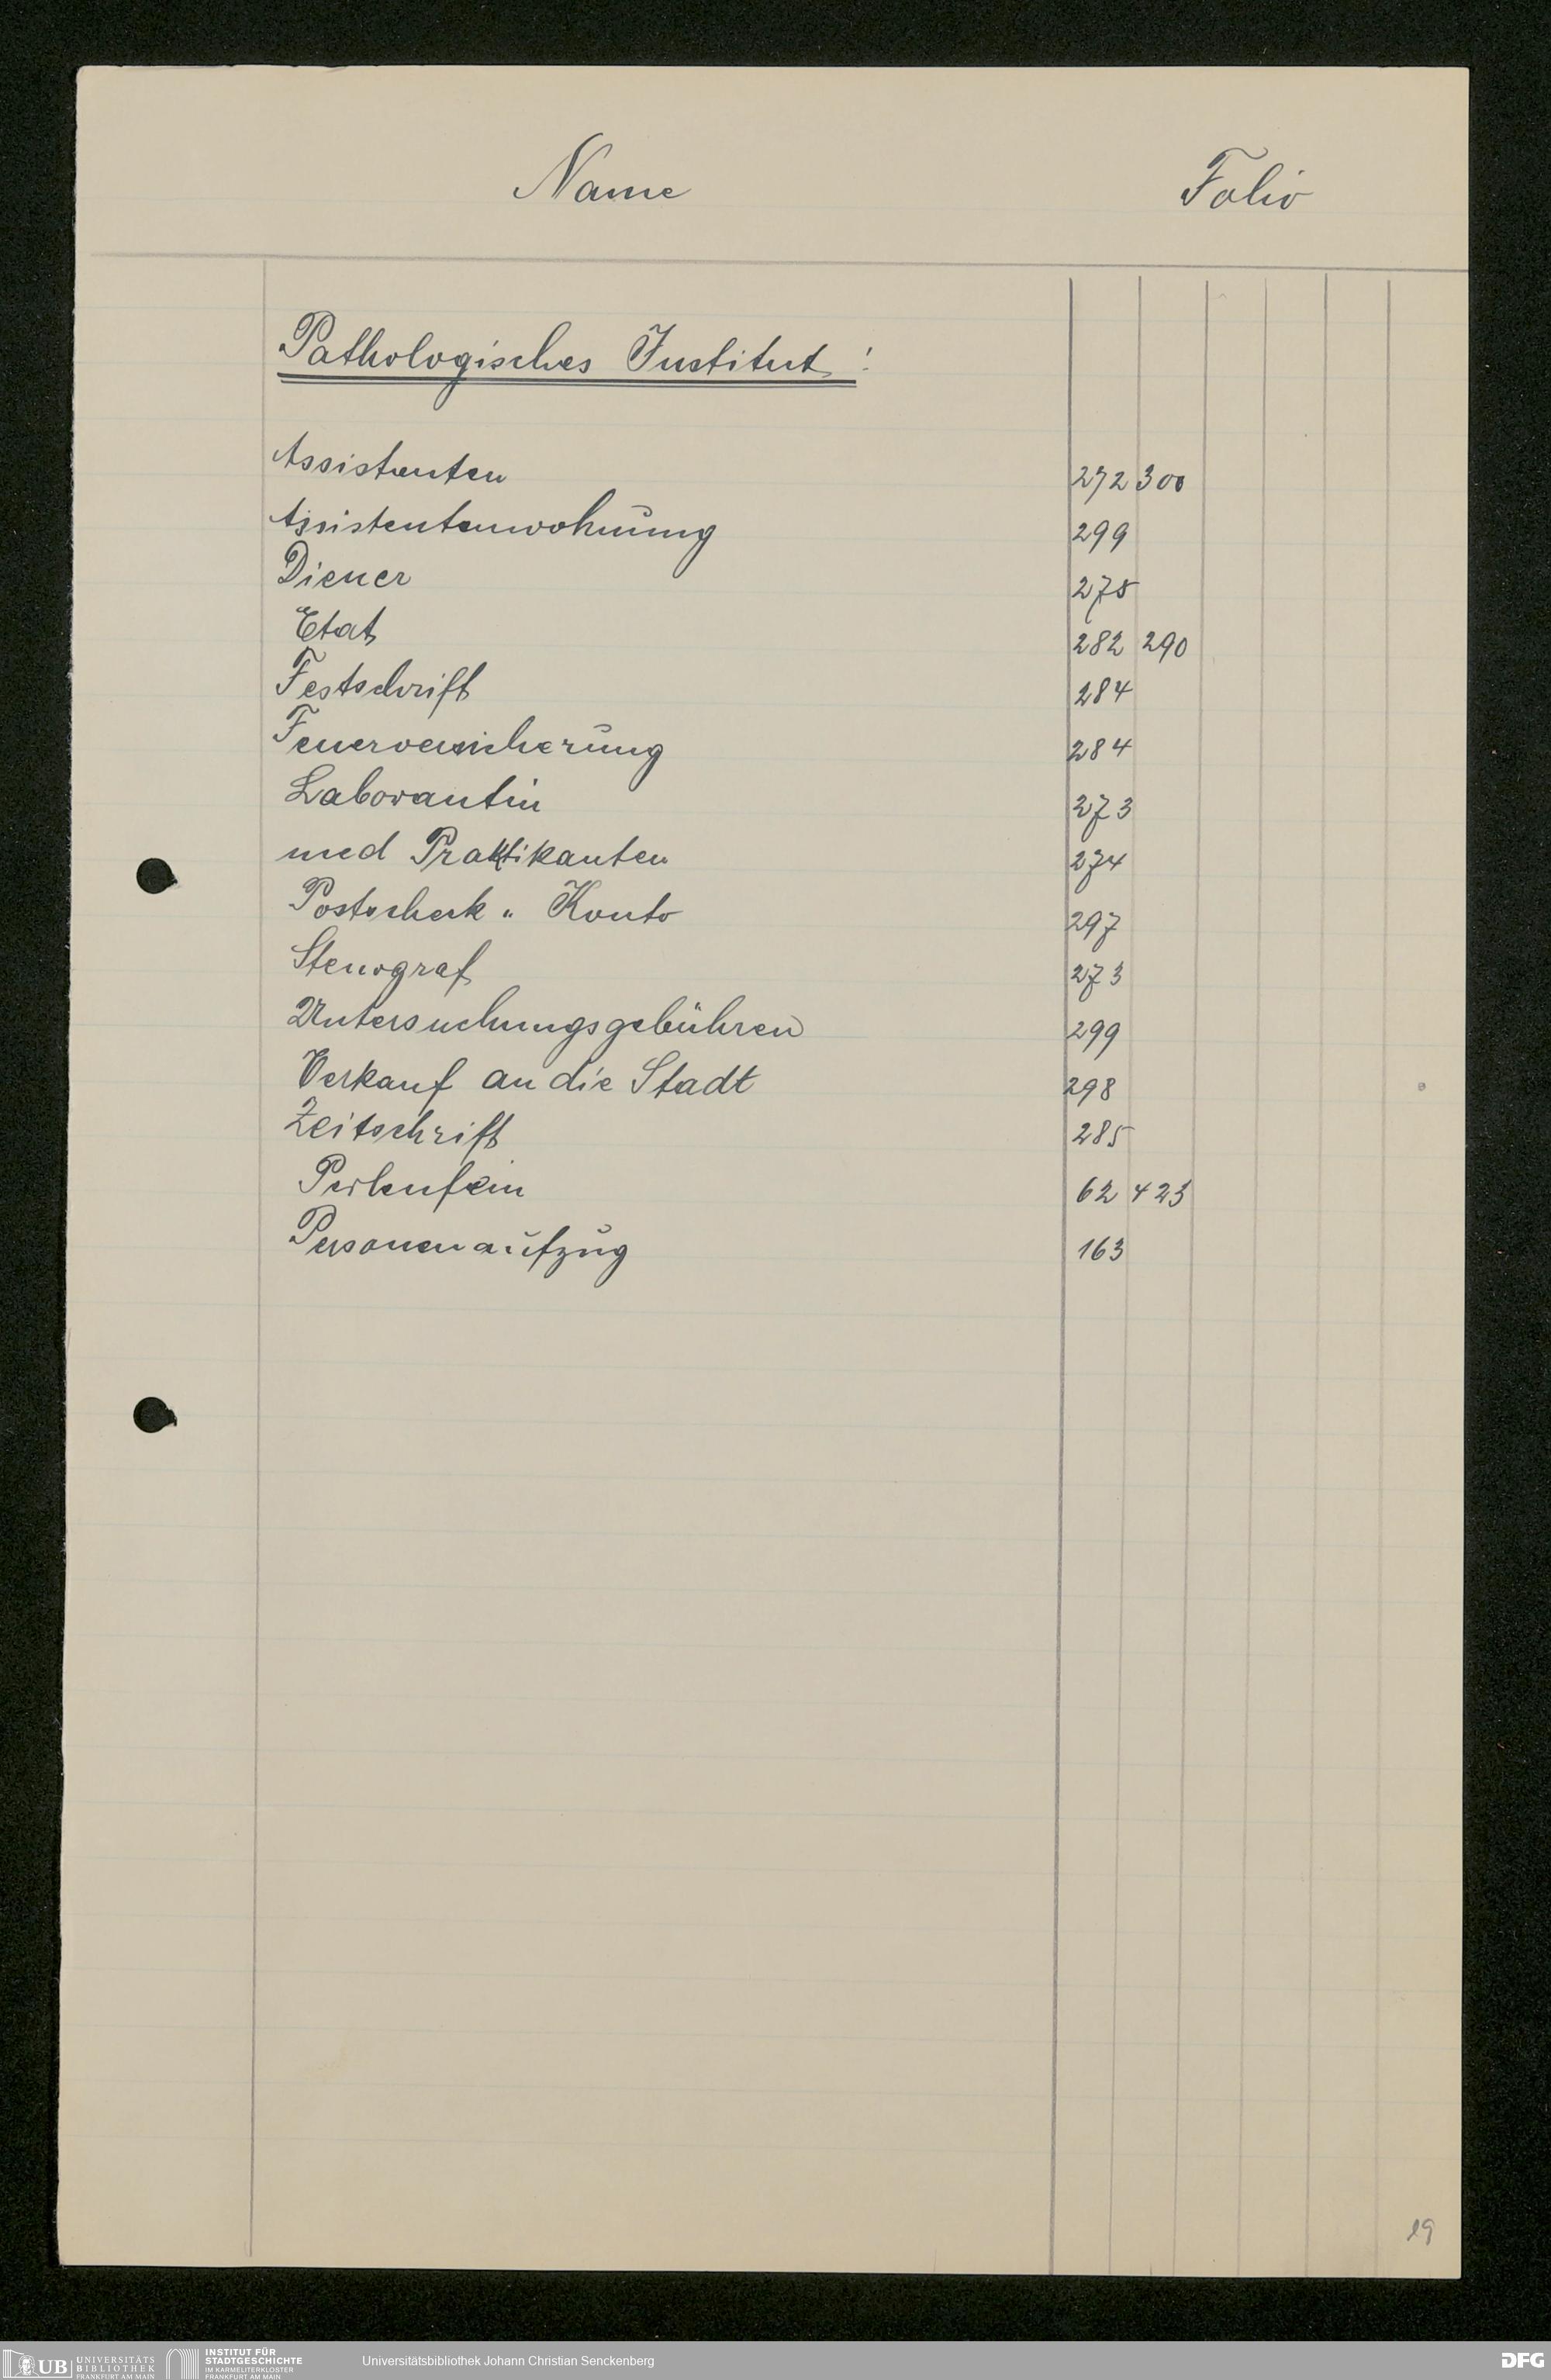 Name Folio
Pathologisches Institut:
Assistenten 272 300
Assistentenwohnung 299
Diener 275
Etat 282 290
Festschrift 284
Feuerversicherung 284
Laborantin 273
med Praktikanten 274
Postscheck " Konto 297
Stenograf 273
Untersuchungsgebühren 299
Verkauf an die Stadt 298
Zeitschrift 285
62 423
Personenaufzug 163
19
UB UNIVERSITÄTS BIBLIOTHEK FRANKFURT AM MAIN
INSTITUT FÜR STADTGESCHICHTE IM KARMELITERKLOSTER FRANKFURT AM MAIN
Universitätsbibliothek Johann Christian Senckenberg
DFG